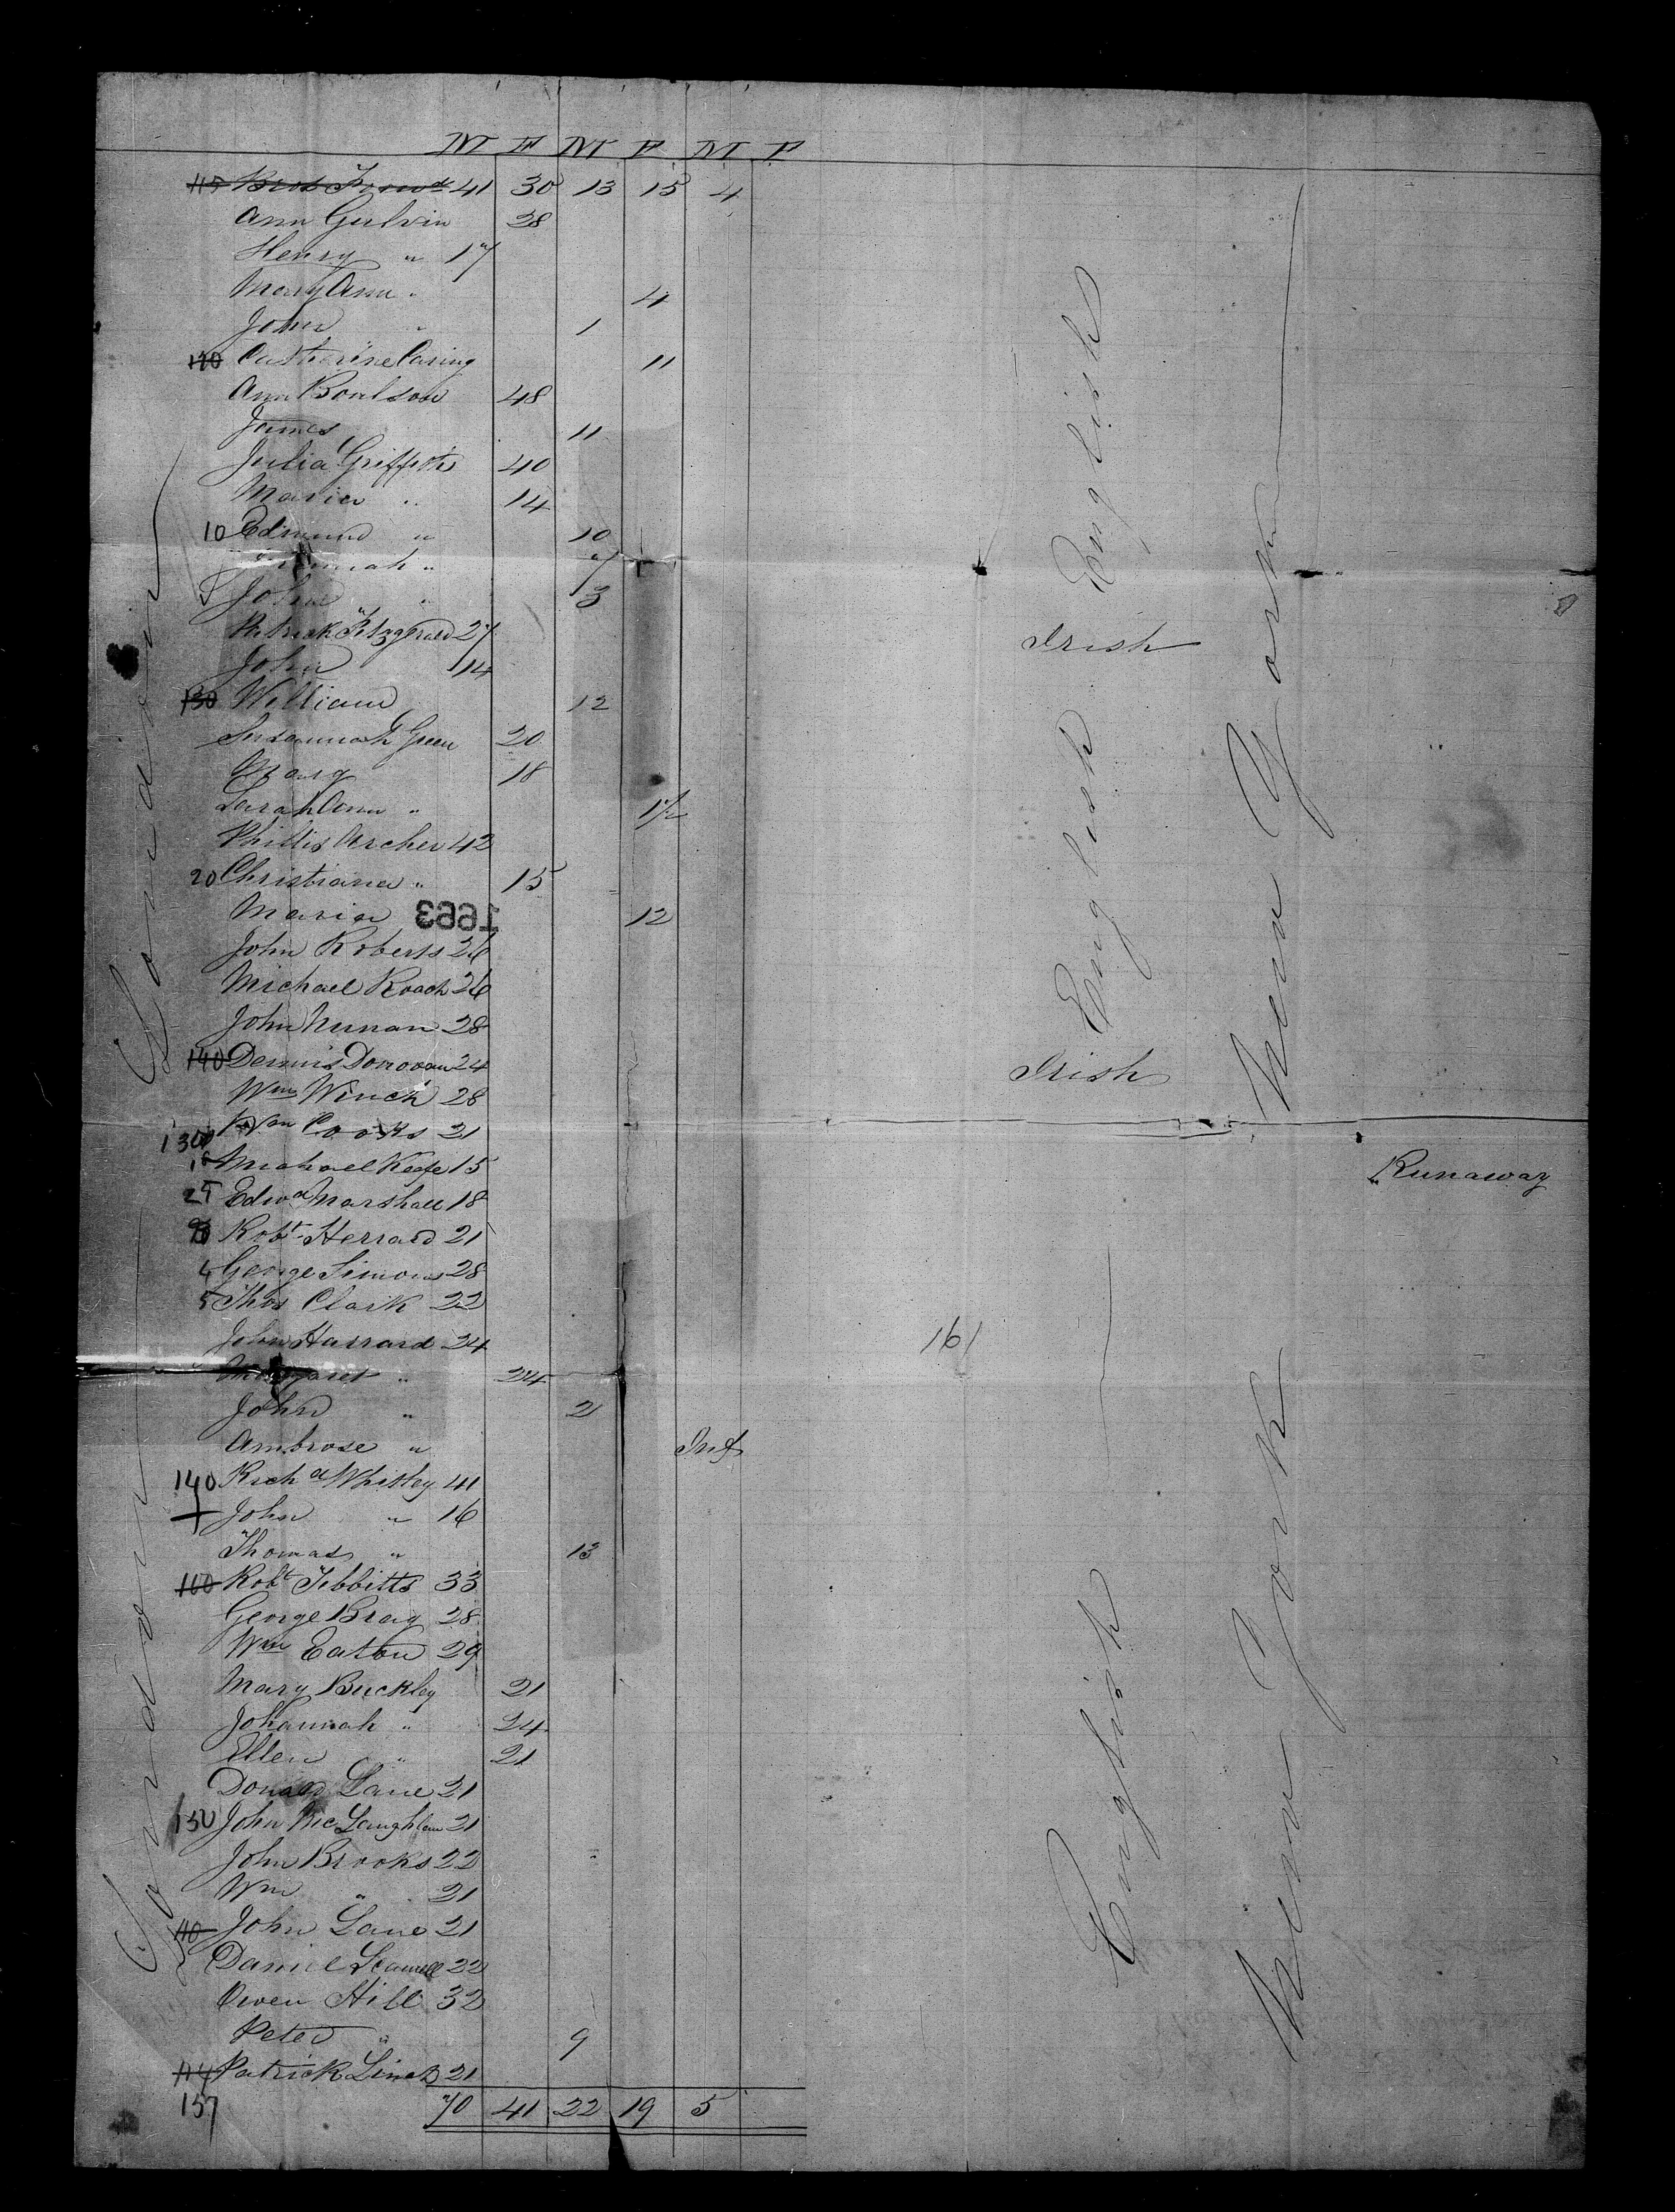 M F M F M F
115 Brot Forwd 41 30 13 15 4
Ann Gulvin 28
Henry " 17
Mary Ann " 4
John " 1
120 Catherine Caring 11
Ann Boulson 48
James 11
Julia Griffiths 40
Maria " 14
10 Edmund " 10
" 7
John " 3
Patrick Fitzgerald 27
John 14
130 William 12
Susannah Green 20
Mary 18
Sarah Ann " 1/2
Phillis Archer 42
20 Christiana " 15
Maria 12
1663
John Roberts 26
Michael Roach 26
John Nunan 28
140 Dennis Donovan 24
Wm Winch 28
130 Wm Cooks 21
Michael Keefe 15
Edwd Marshall 18
Robt Herrard 21
4 George Simons 28
5 Thos Clark 22
John Harrard 24
Margaret " 24
John " 2
Ambrose " Inf
140 Richd Whitley 41
John " 16
Thomas " 13
160 Robt Tibbitts 33
George Bray 28
Wm Eaton 29
Mary Buckley 21
Johannah " 24
Ellen " 21
Donald Lane 21
150 John McLaughlan 21
John Brooks 22
Wm " 21
John Lane 21
Daniel Scannell 22
Owen Hill 32
Peter " 9
Patrick Linch 21
157 70 41 22 19 5
London
London
English
Irish
English
Irish
English
New York
New York
Runaway
161